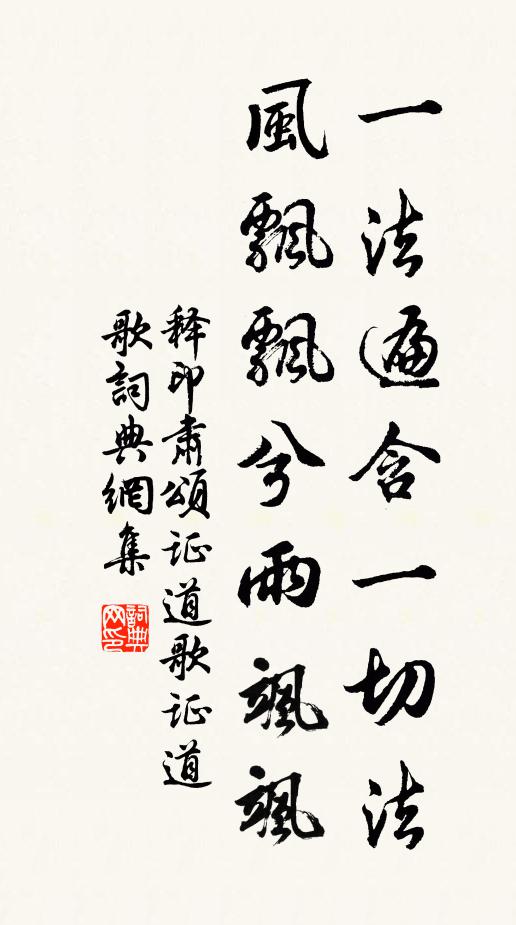 一法遍含一切法
風飄飄兮雨颯颯
释印肃頌证道歌证道
歌詞典網集
詞典
网印